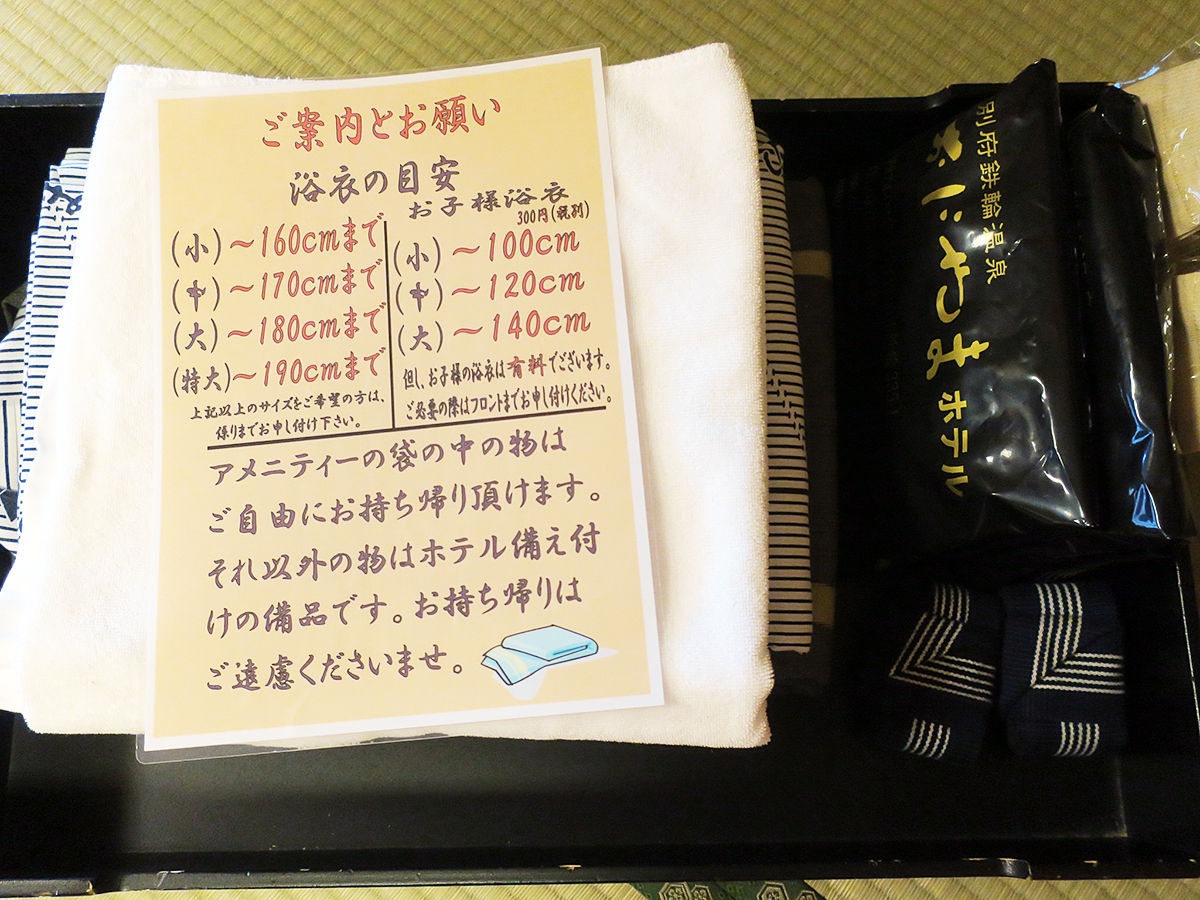 ご案内とお願い
浴衣の目安
お子様浴衣
300円(税別)
(小)～160cmまで
(中)～170cmまで
(大)～180cmまで
(特大)～190cmまで
上記以上のサイズをご希望の方は、
係りまでお申し付け下さい。
(小)～100cm
(中)～120cm
(大)～140cm
但し、お子様の浴衣は有料でございます。
ご必要の際はフロントまでお申し付けください。
アメニティーの袋の中の物は
ご自由にお持ち帰り頂けます。
それ以外の物はホテル備え付
けの備品です。お持ち帰りは
ご遠慮くださいませ。
別府鉄輪温泉
おにやまホテル